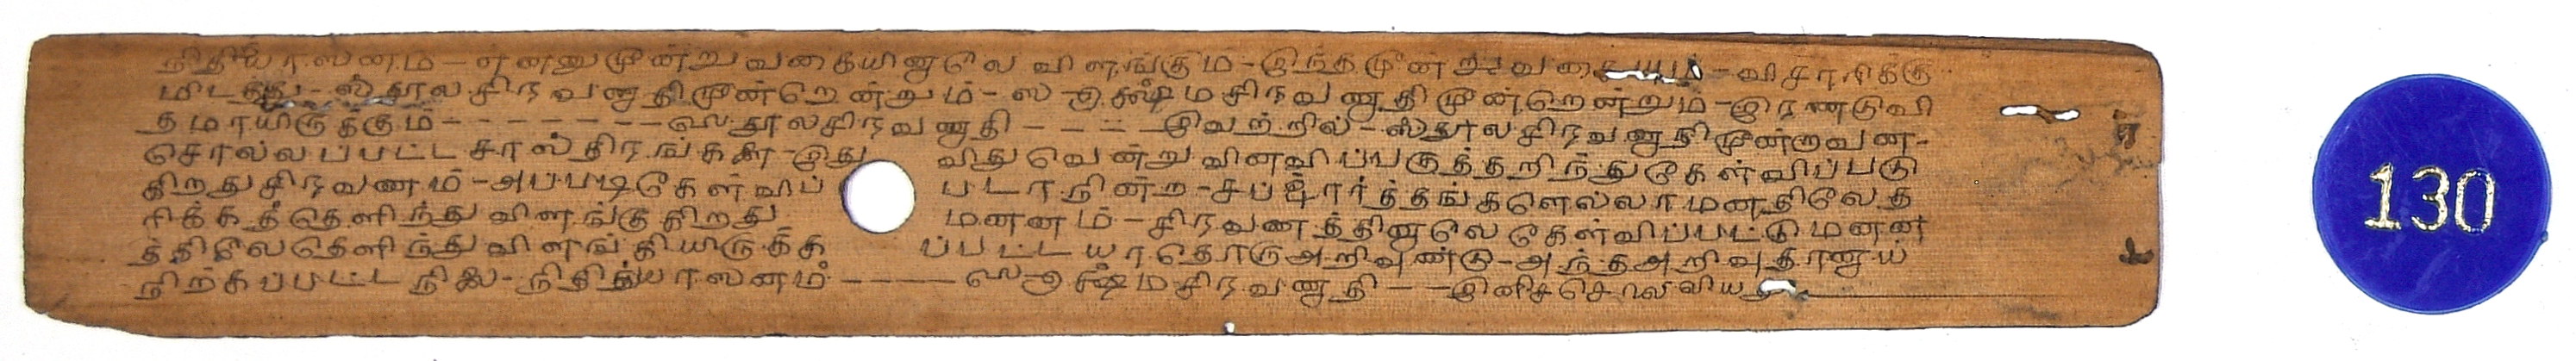 நிதித்யாஸனம் - என்னு மூன்று வகையினாலே விளங்கும் - இந்த மூன்று வகையும் - விசாரிக்கு
மிடத்து - ஸ்தூல சிரவணாதி மூன்றென்றும் - ஸூக்ஷ்ம சிரவணாதி மூன்றென்றும் - இரண்டு வி
தமாயிருக்கும் - - - - - - - - ஸ்தூலசிரவணாதி - - - - இவற்றில் - ஸ்தூல சிரவணாதி மூன்றாவன -
சொல்லப்பட்ட சாஸ்திரங்களை - இது விதுவென்று வினவிப்பகுத்தறிந்து கேள்விப்படு
கிறது சிரவணம் - அப்படி கேள்விப் படாநின்ற - சப்தார்த்தங்களெல்லாமனதிலே த
ரிக்கத்தெளிந்து விளங்குகிறது மனனம் - சிரவணத்தினாலே கேள்விப்பட்டு மனன
த்திலே தெளிந்து விளங்கியிருக்க ப்பட்டயாதொரு அறிவுண்டு - அந்த அறிவுதானாய்
நிற்கப்பட்ட நிலை - நிதித்யாஸனம் - - - - ஸூக்ஷ்ம சிரவணாதி - - இனிச்சொல்லிய
130